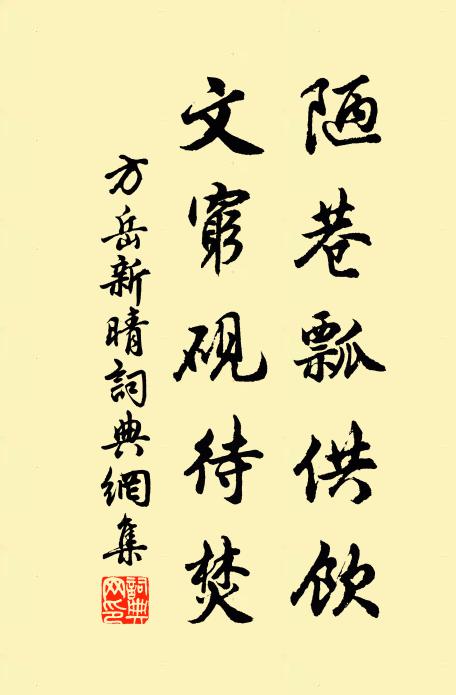 陋巷瓢供飲
文窮硯待焚
方岳新晴詞典網集
詞典網印